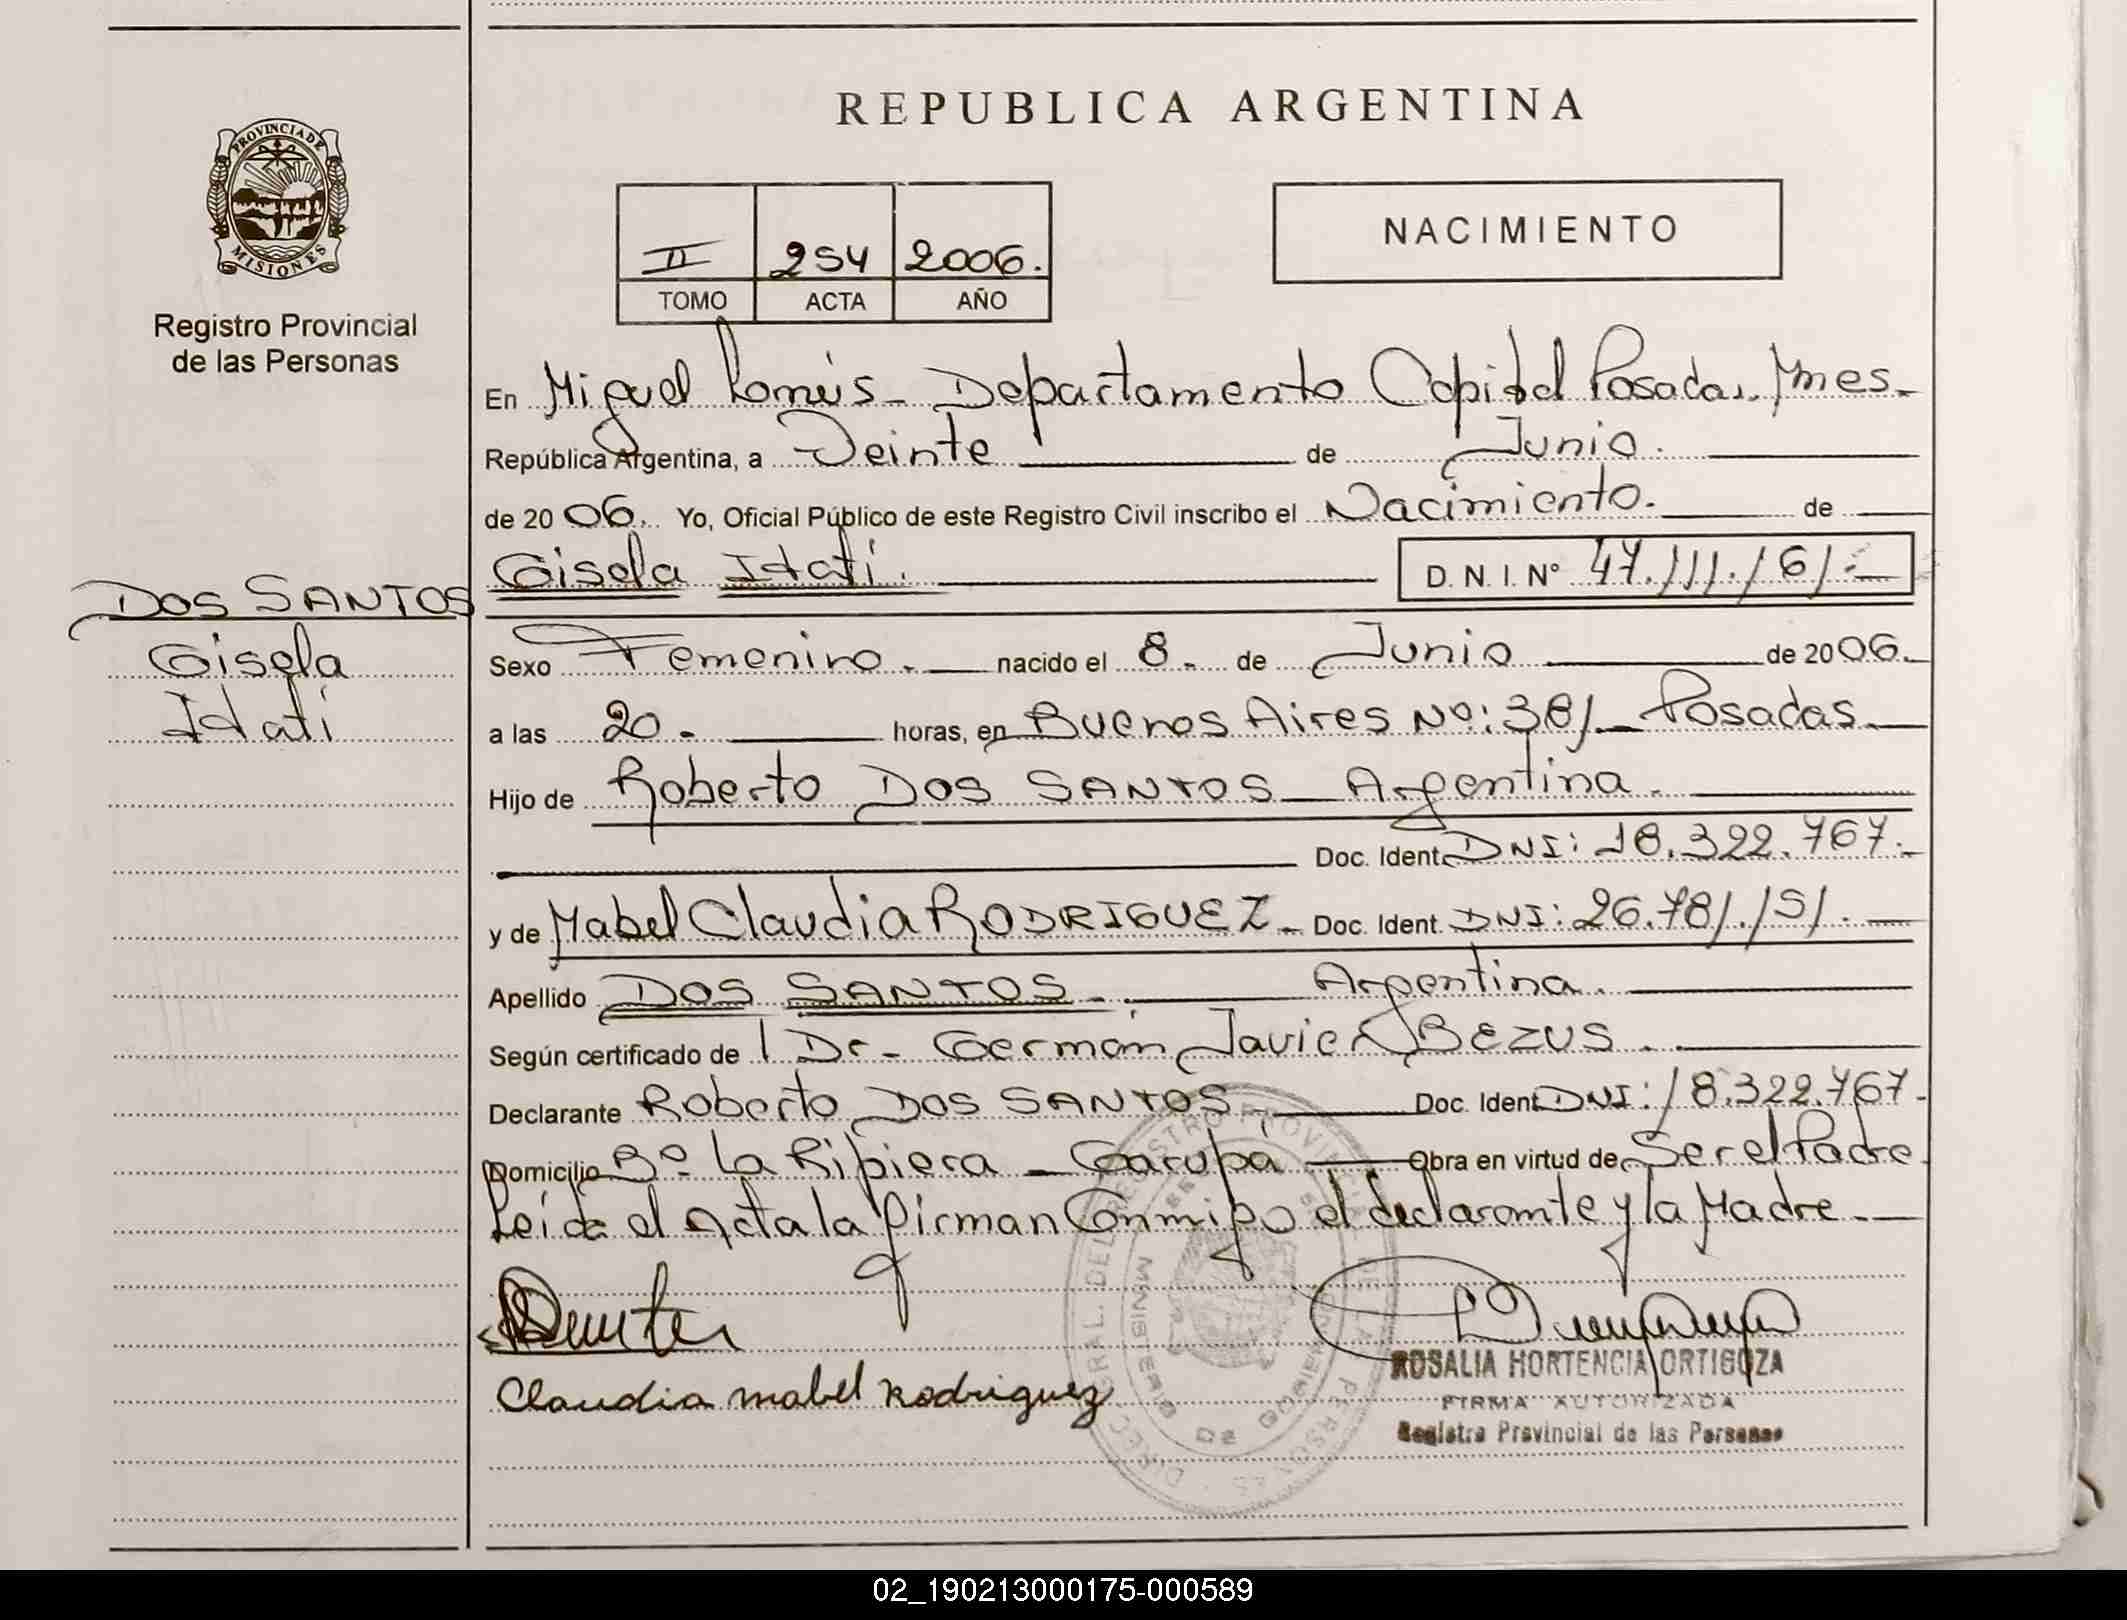 REPUBLICA ARGENTINA
PROVINCIA DE
MISIONES
Registro Provincial
de las Personas
II 254 2006.
TOMO ACTA AÑO
NACIMIENTO
En Miguel Lanús - Departamento Capital Posadas. Mnes.
República Argentina, a Veinte de Junio.
de 2006. Yo, Oficial Público de este Registro Civil inscribo el Nacimiento. de
Gisela Itatí. D. N. I. Nº 47.111.161.-
DOS SANTOS
Gisela
Itatí
Sexo Femenino. nacido el 8. de Junio de 2006.
a las 20. horas, en Buenos Aires Nº: 381 - Posadas.
Hijo de Roberto DOS SANTOS - Argentina.
Doc. Ident. DNI: 18.322.767.-
y de Mabel Claudia RODRIGUEZ - Doc. Ident. DNI: 26.781.151.
Apellido DOS SANTOS. Argentina.
Según certificado de Dr. Germán Javier BEZUS.
Declarante Roberto DOS SANTOS Doc. Ident. DNI: 18.322.767.
Domicilio Bº La Ribiera - Garupá Obra en virtud de Ser el Padre
Leída el Acta la firman Conmigo el declarante y la Madre.
Claudia mabel Rodriguez
ROSALIA HORTENCIA ORTIGOZA
FIRMA AUTORIZADA
Registro Provincial de las Personas
02_190213000175-000589